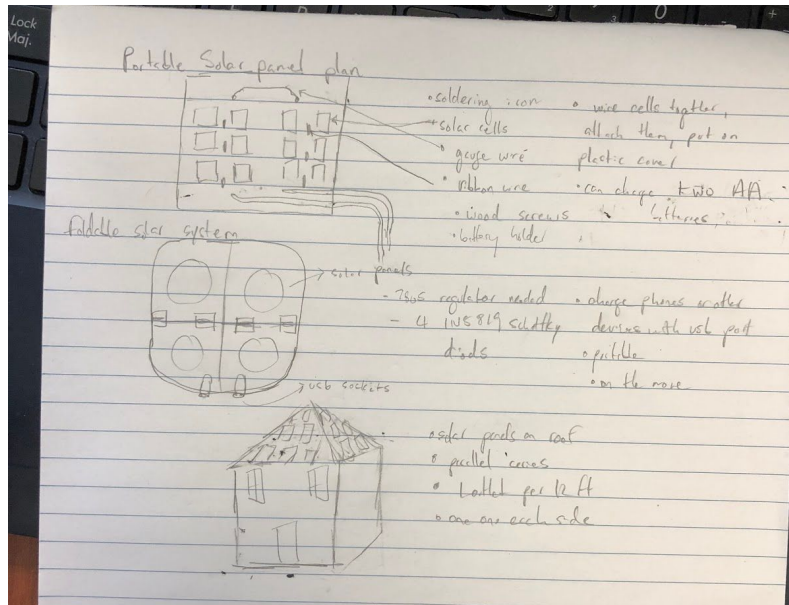 Lock
Maj.
0
+
Portable Solar panel plan
• soldering iron
solar cells
• gauge wire
• ribbon wire
• wood screws
• battery holder
• wire cells togther,
attach them, put on
plastic cover
• can charge two AA
batteries
foldable solar system
solar panels
usb sockits
- 7805 regulator needed
- 4 1N5819 schottky
diods
• charge phones or other
devices with usb port
• portable
• on the move
• solar panels on roof
• parallel series
• 1 outlet per 12 ft
• one one each side